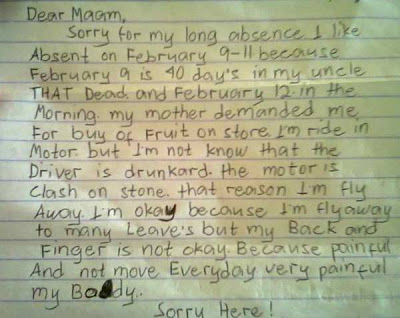 Dear Maam,
Sorry for my long absence I like
Absent on February 9-11 because
February 9 is 40 day's in my uncle
THAT Dead. and February 12 in the
Morning. my mother demanded me,
For buy of Fruit on store. I'm ride in
Motor. but I'm not know that the
Driver is drunkard. the motor is
Clash on stone. that reason I'm fly
Away. I'm okay because I'm flyaway
to many Leave's but my Back and
Finger is not okay Because painful
And not move Everyday very painful
my Body..
Sorry Here!